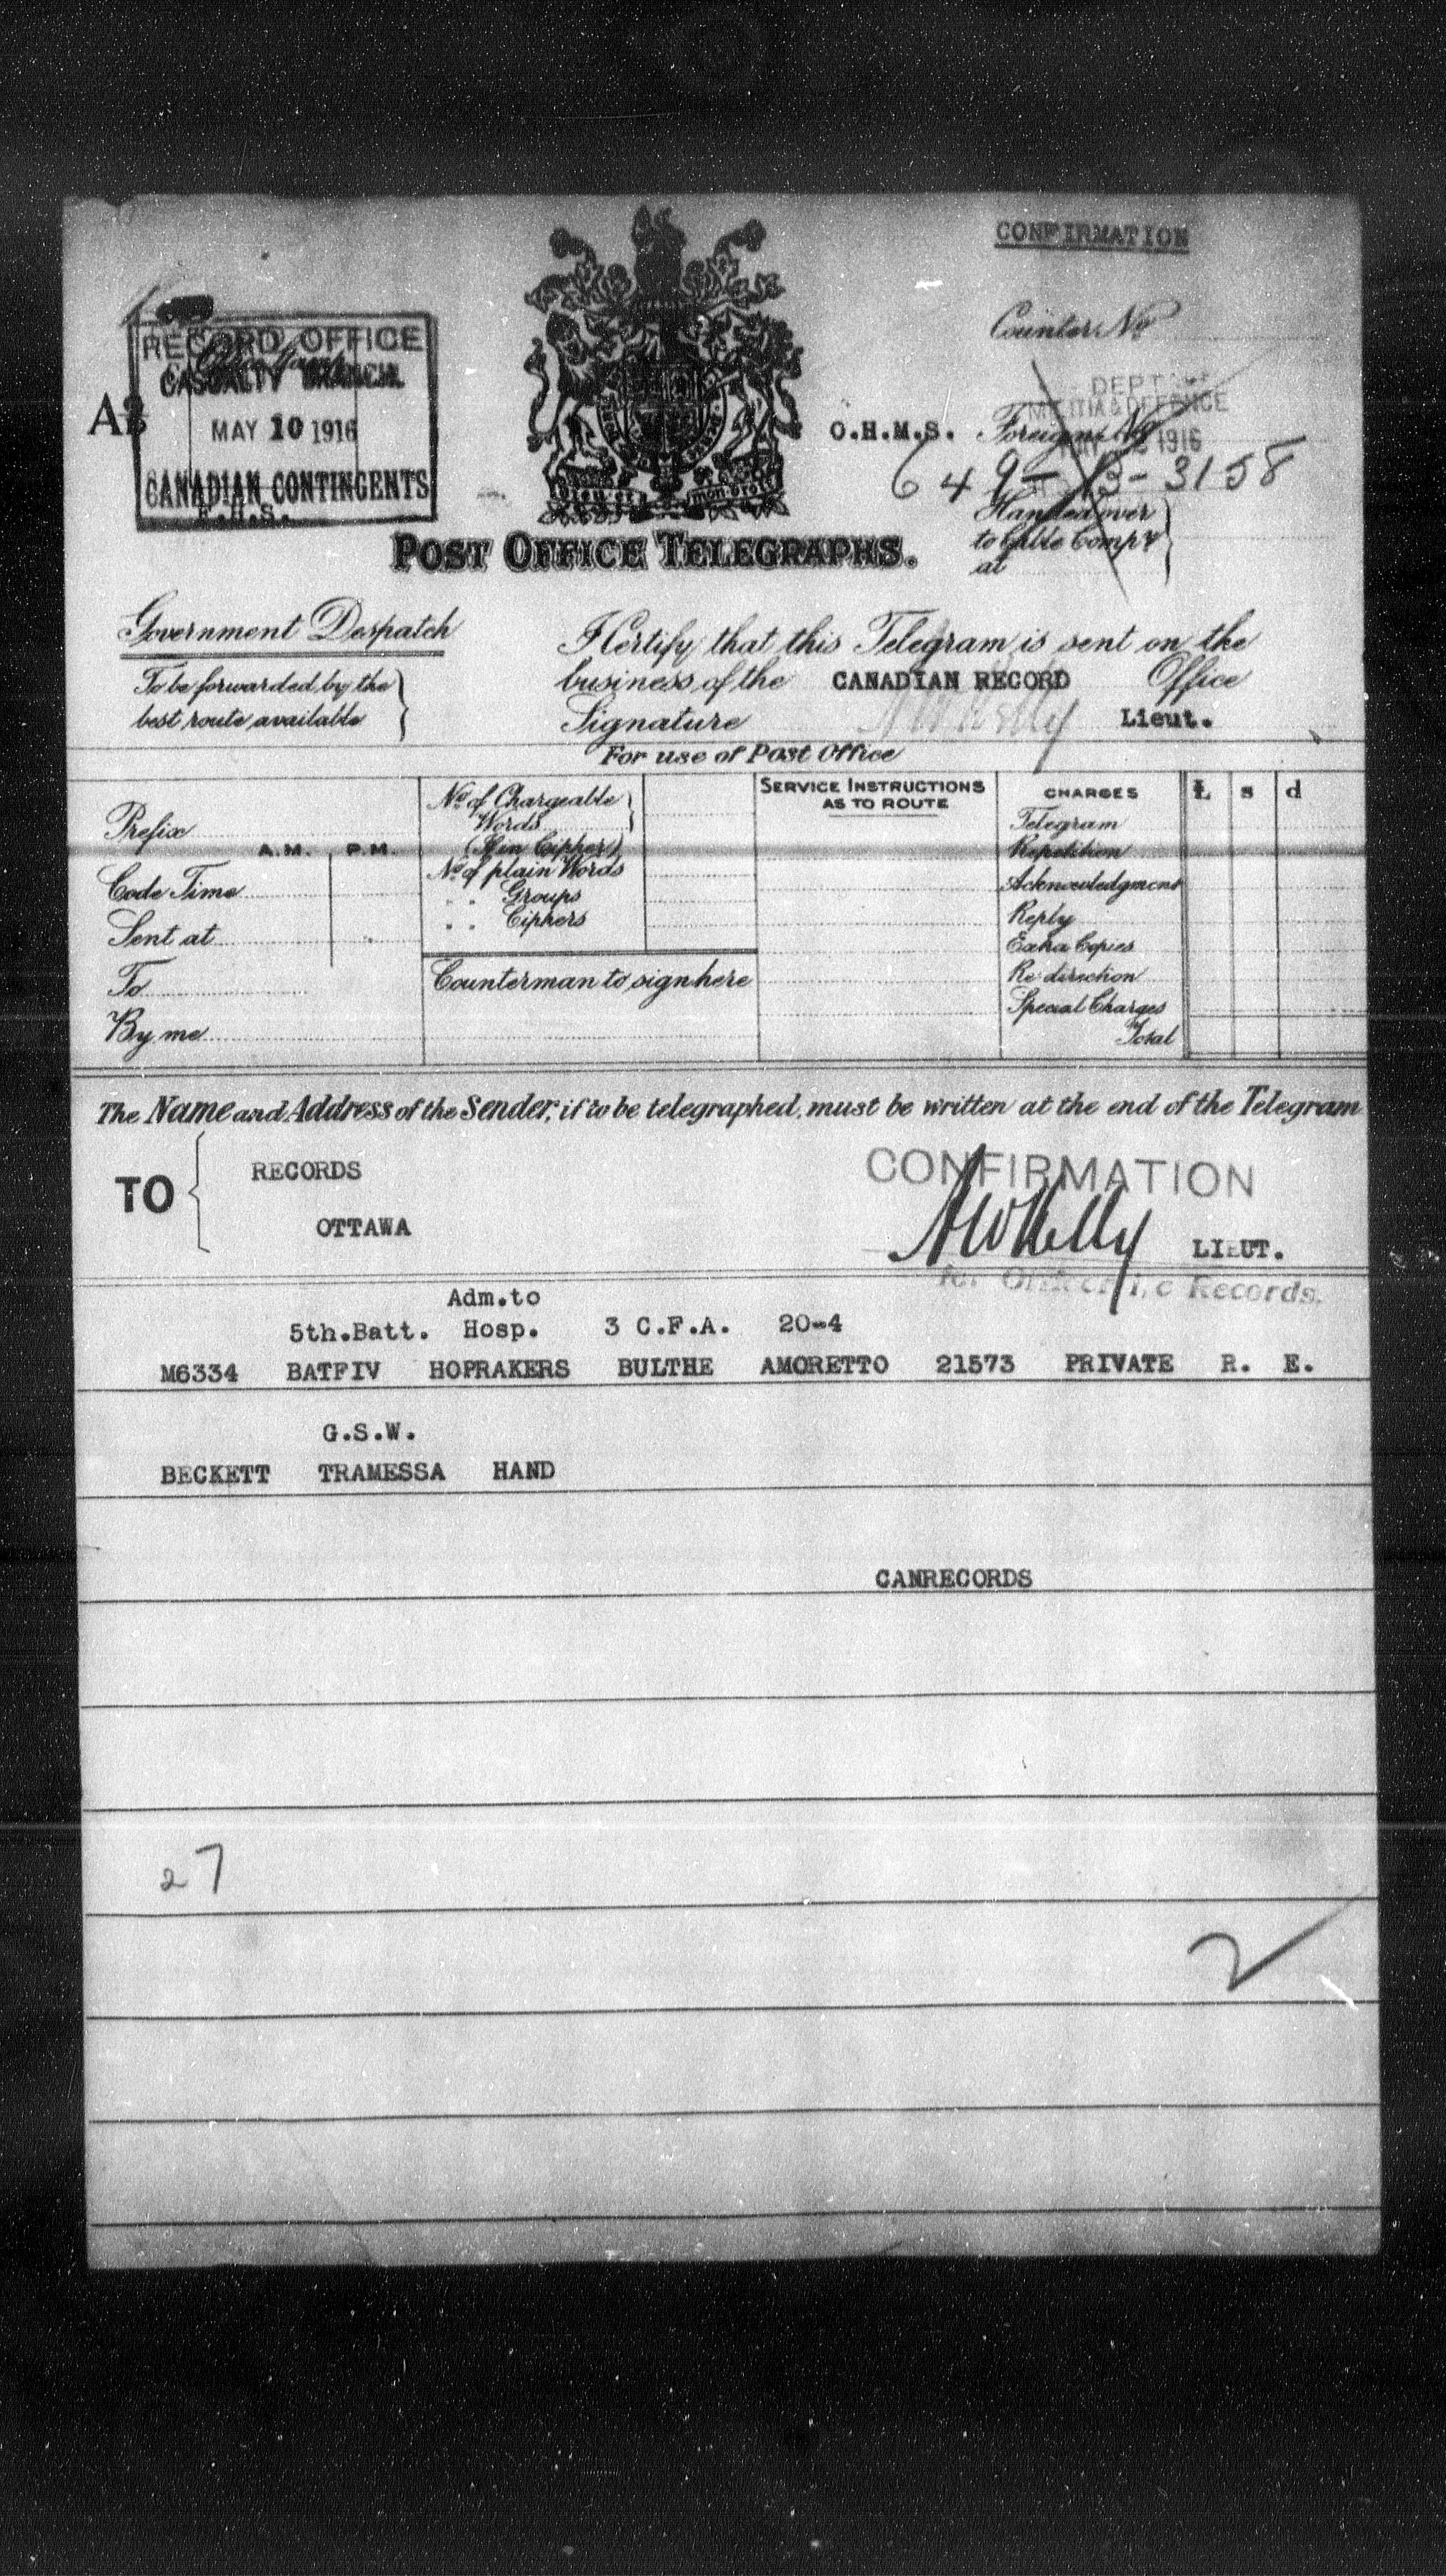 CONFIRMATION
Counter No
RECORD OFFICE
CASUALTY BRANCH
MAY 10 1916
CANADIAN CONTINGENTS
O.H.M.S.
Foreign No
DEPT. OF
MILITIA & DEFENCE
1916
649-B-3158
Handed over
to Cable Compy
at
POST OFFICE TELEGRAPHS.
Government Despatch
To be forwarded by the
best route available
I Certify that this Telegram is sent on the
business of the CANADIAN RECORD Office
Signature Lieut.
For use of Post Office
Prefix
A.M. P.M.
Code Time
Sent at
To
By me
No of Chargeable
Words
(If in Cipher)
No of plain Words
" " Groups
" " Ciphers
Counterman to sign here
SERVICE INSTRUCTIONS
AS TO ROUTE
CHARGES £ s d
Telegram
Repetition
Acknowledgment
Reply
Extra Copies
Re direction
Special Charges
Total
The Name and Address of the Sender, if to be telegraphed, must be written at the end of the Telegram
TO
RECORDS
OTTAWA
CONFIRMATION
AW Kelly LIEUT.
for Officer i/c Records.
Adm.to
5th.Batt. Hosp. 3 C.F.A. 20-4
M6334 BATFIV HOPRAKERS BULTHE AMORETTO 21573 PRIVATE R. E.
G.S.W.
BECKETT TRAMESSA HAND
CANRECORDS
27
2